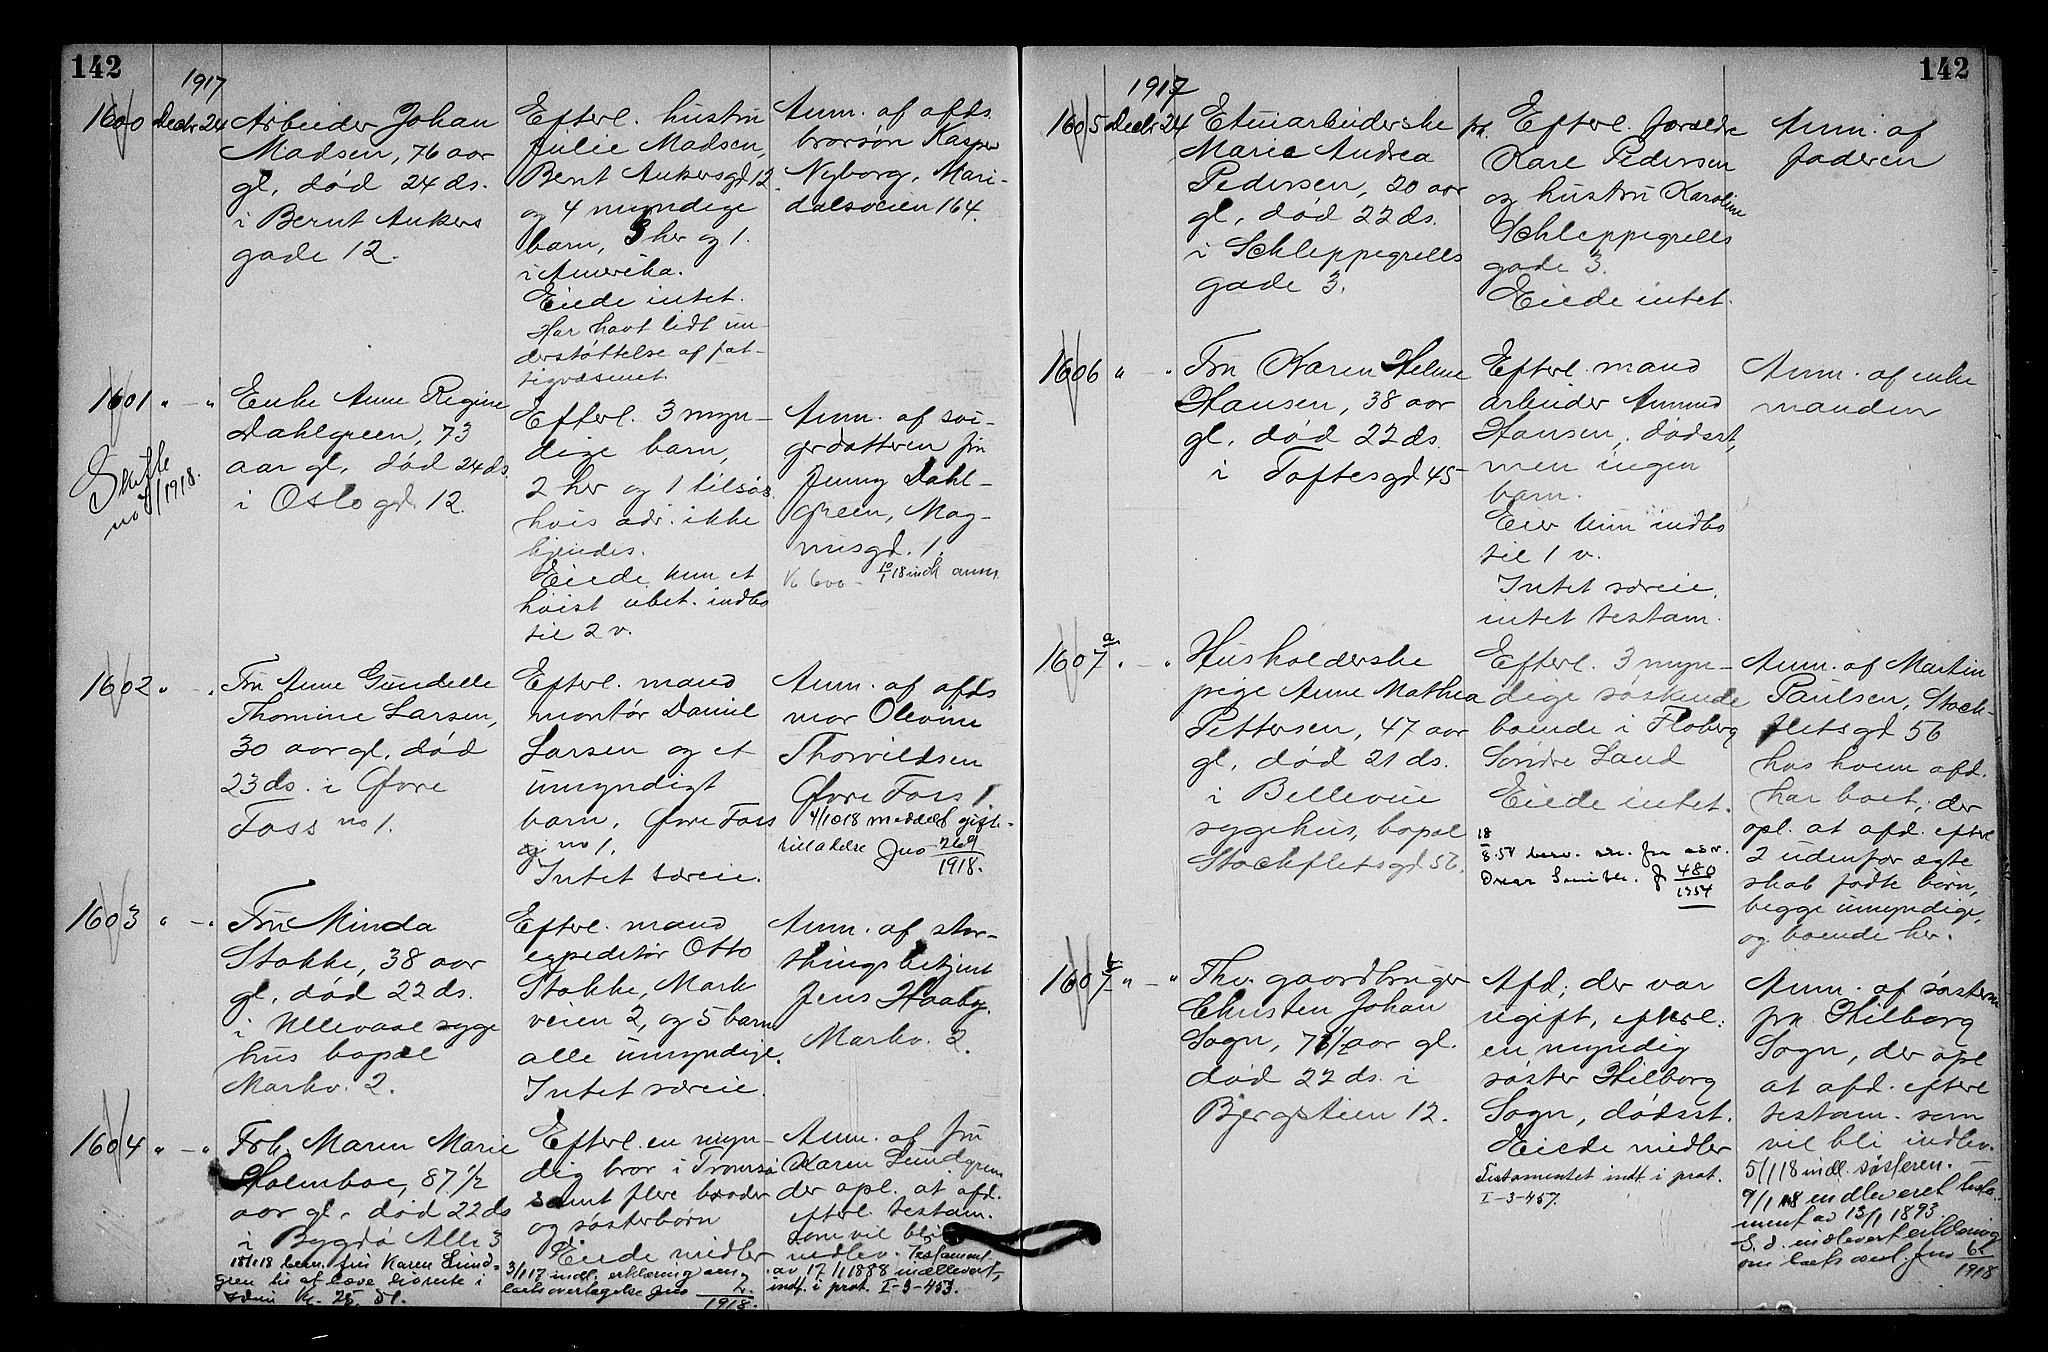 142
1917
1600 Decbr 24
Arbeider Johan
Madsen, 76 aar
gl, død 24 ds.
i Bernt Ankers
gade 12.
Efterl. hustru
Julie Madsen,
Bernt Ankersgd 12
og 4 myndige
barn, 3 her og 1
i Amerika.
Eiede intet.
Har havt lidt un-
derstøttelse af fat-
tigvæsenet.
Anm. af afds
brorsøn Kasper
Nyborg, Mari-
dalsveien 164.
1601 " - "
Skifte
no /1918.
Enke Anne Regine
Dahlgreen, 73
aar gl, død 24 ds.
i Oslo gd. 12.
Efterl. 3 myn-
dige barn,
2 her og 1 tilsøs
hvis adr. ikke
kjendes.
Eiede kun et
høist ubet. indbo
til 2 v.
Anm. af svi-
gerdatteren fru
Jenny Dahl-
green, Mag-
nusgd. 1.
Kr 600 - 10/1 18 indk anm.
1602 " - "
Fru Anne Gundelle
Thomine Larsen,
30 aar gl, død
23 ds. i Øvre
Foss no 1.
Efterl. mand
montør Daniel
Larsen og et
umyndigt
barn, Øvre Foss
no 1.
Intet særeie.
Anm. af afds
mor Olevine
Thorvildsen
Øvre Foss 1
4/10 18 meddelt gifte-
tilladelse Jno 269
1918.
1603 " - "
Fru Minda
Stokke, 38 aar
gl, død 22 ds.
i Ullevaal syge
hus bopæl
Markv. 2.
Efterl. mand
expeditør Otto
Stokke, Mark
veien 2, og 5 barn
alle umyndige.
Intet særeie.
Anm. af stor-
thingsbetjent
Jens Haaby.
Markv. 2.
1604 " - "
Frk. Maren Marie
Holmboe, 87 1/2
aar gl, død 22 ds
i Bygdø Alle 3
18/1 18 bem. fru Karen Lund-
green til at hæve sidste i
Kr. 25.51.
Efterl. en myn-
dig bror i Tromsø
samt flere broder
og søsterbørn
Eiede midler
3/1 17 indl. erklæring om
boets overtagelse Jno 2
1918.
Anm. af fru
Karen Lundgreen
der opl. at afd.
efterl. testam.
som vil bli
indlev. Testament
av 17/1 1888 indleveret,
indt. i prot. I-3-453.
142
1917
1605 Decbr 24
Etuiarbeiderske
Marie Andrea
Pedersen, 20 aar
gl, død 22 ds.
i Schleppegrells
gade 3.
Efterl. forældre
Karl Pedersen
og hustru Karoline
Schleppegrells
gade 3.
Eiede intet.
Anm. af
faderen
1606 " - "
Fru Karen Helene
Hansen, 38 aar
gl, død 22 ds.
i Toftesgd 45
Efterl. mand
arbeider Amund
Hansen, dødsst,
men ingen
barn.
Eier kun indbo
til 1 v.
Intet særeie,
intet testam.
Anm. af enke
manden
1607 a " - "
Husholderske
pige Anne Mathea
Pettersen, 47 aar
gl, død 21 ds.
i Bellevue
sygehus, bopæl
Stockfletsgd 56.
Efterl. 3 myn-
dige søskende
boende i Fluberg
Søndre Land
Eiede intet.
18
8.54 fra adv.
J 480
1954
Anm. af Martin
Paulsen, Stock-
fletsgd 56
hos hvem afd.
har boet, der
opl. at afd. efterl
2 udenfor ægte
skab fødte børn,
begge umyndige,
og boende her.
1607 b " - "
Fhv. gaardbruger
Christen Johan
Sogn, 76 1/2 aar gl.
død 22 ds. i
Bjergstien 12.
Afd., der var
ugift, efterl.
en myndig
søster Hilborg
Sogn, dødsst.
Eiede midler
Testamentet indt. i prot.
I-3-457.
Anm. af søsteren
frk. Hilborg
Sogn, der opl.
at afd. efterl
testam. som
vil bli indlev.
5/1 18 indk. søsteren.
9/1 18 indleveret testa-
ment av 13/1 1893.
S. d. indlevert erklæring
om boets overt. Jno 62
1918